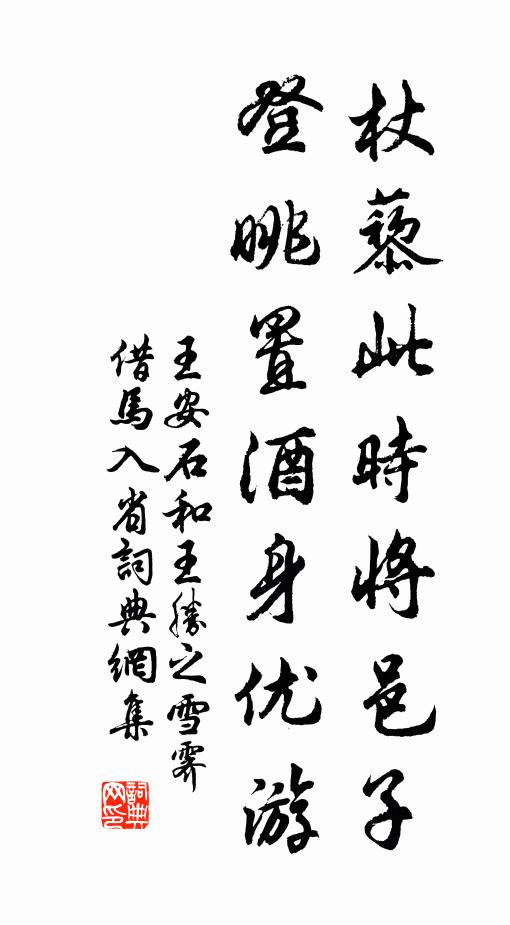 杖藜此時將邑子
登眺置酒身优游
王安石和王勝之雪霽
借馬入省詞典網集
詞典网印